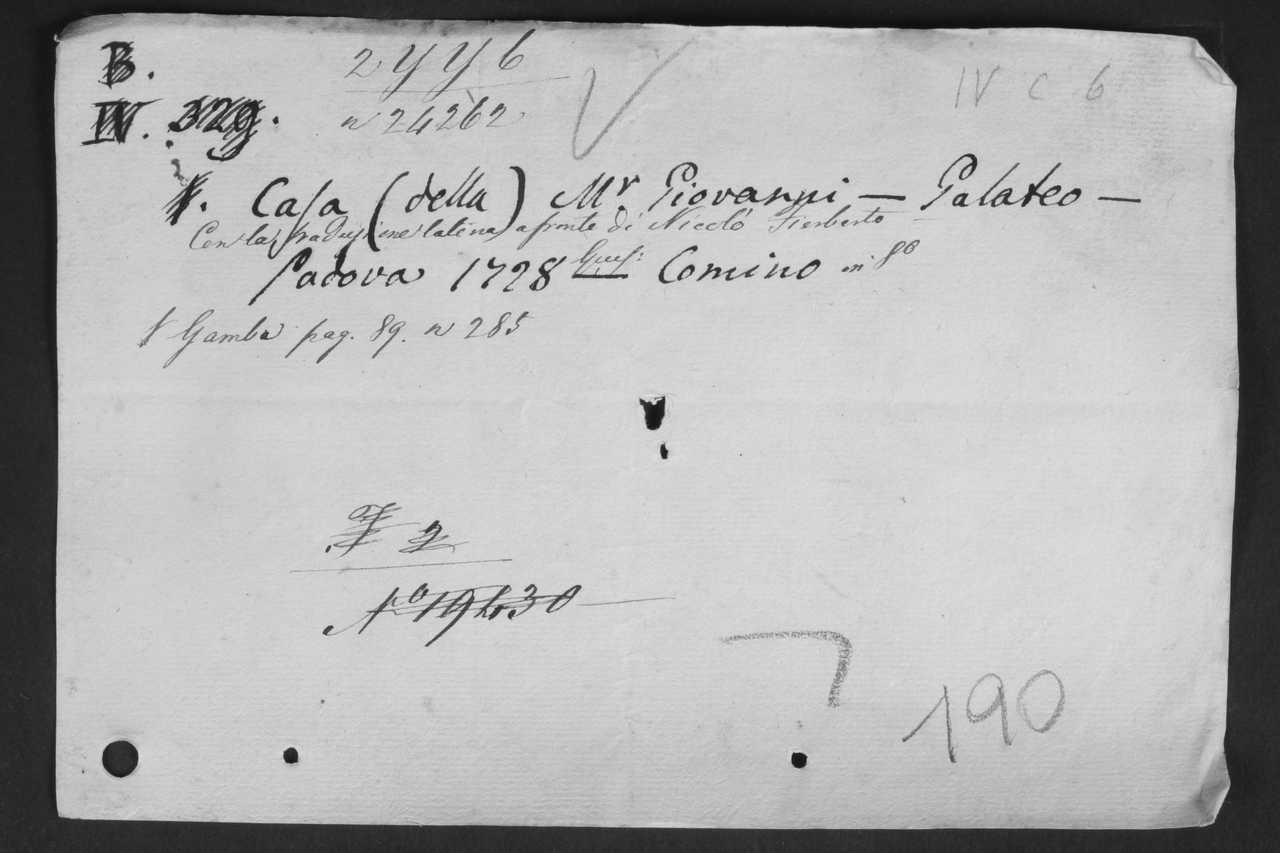 B.
2 y y 6
IV C 6
IV. 329.
n 24262
Casa (della) Mr Giovanni — Galateo —
Con la traduzione latina a fronte di Nicolò Fierberto
Padova 1728 Comino in 8o
Gamba pag. 89. n 285
2
No 19430
190